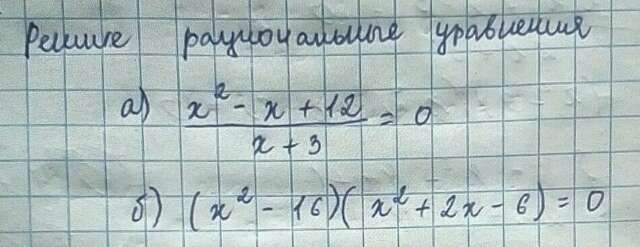 Решите рациональные уравнения
а) (x² - x + 12)/(x + 3) = 0
б) (x² - 16)(x² + 2x - 6) = 0